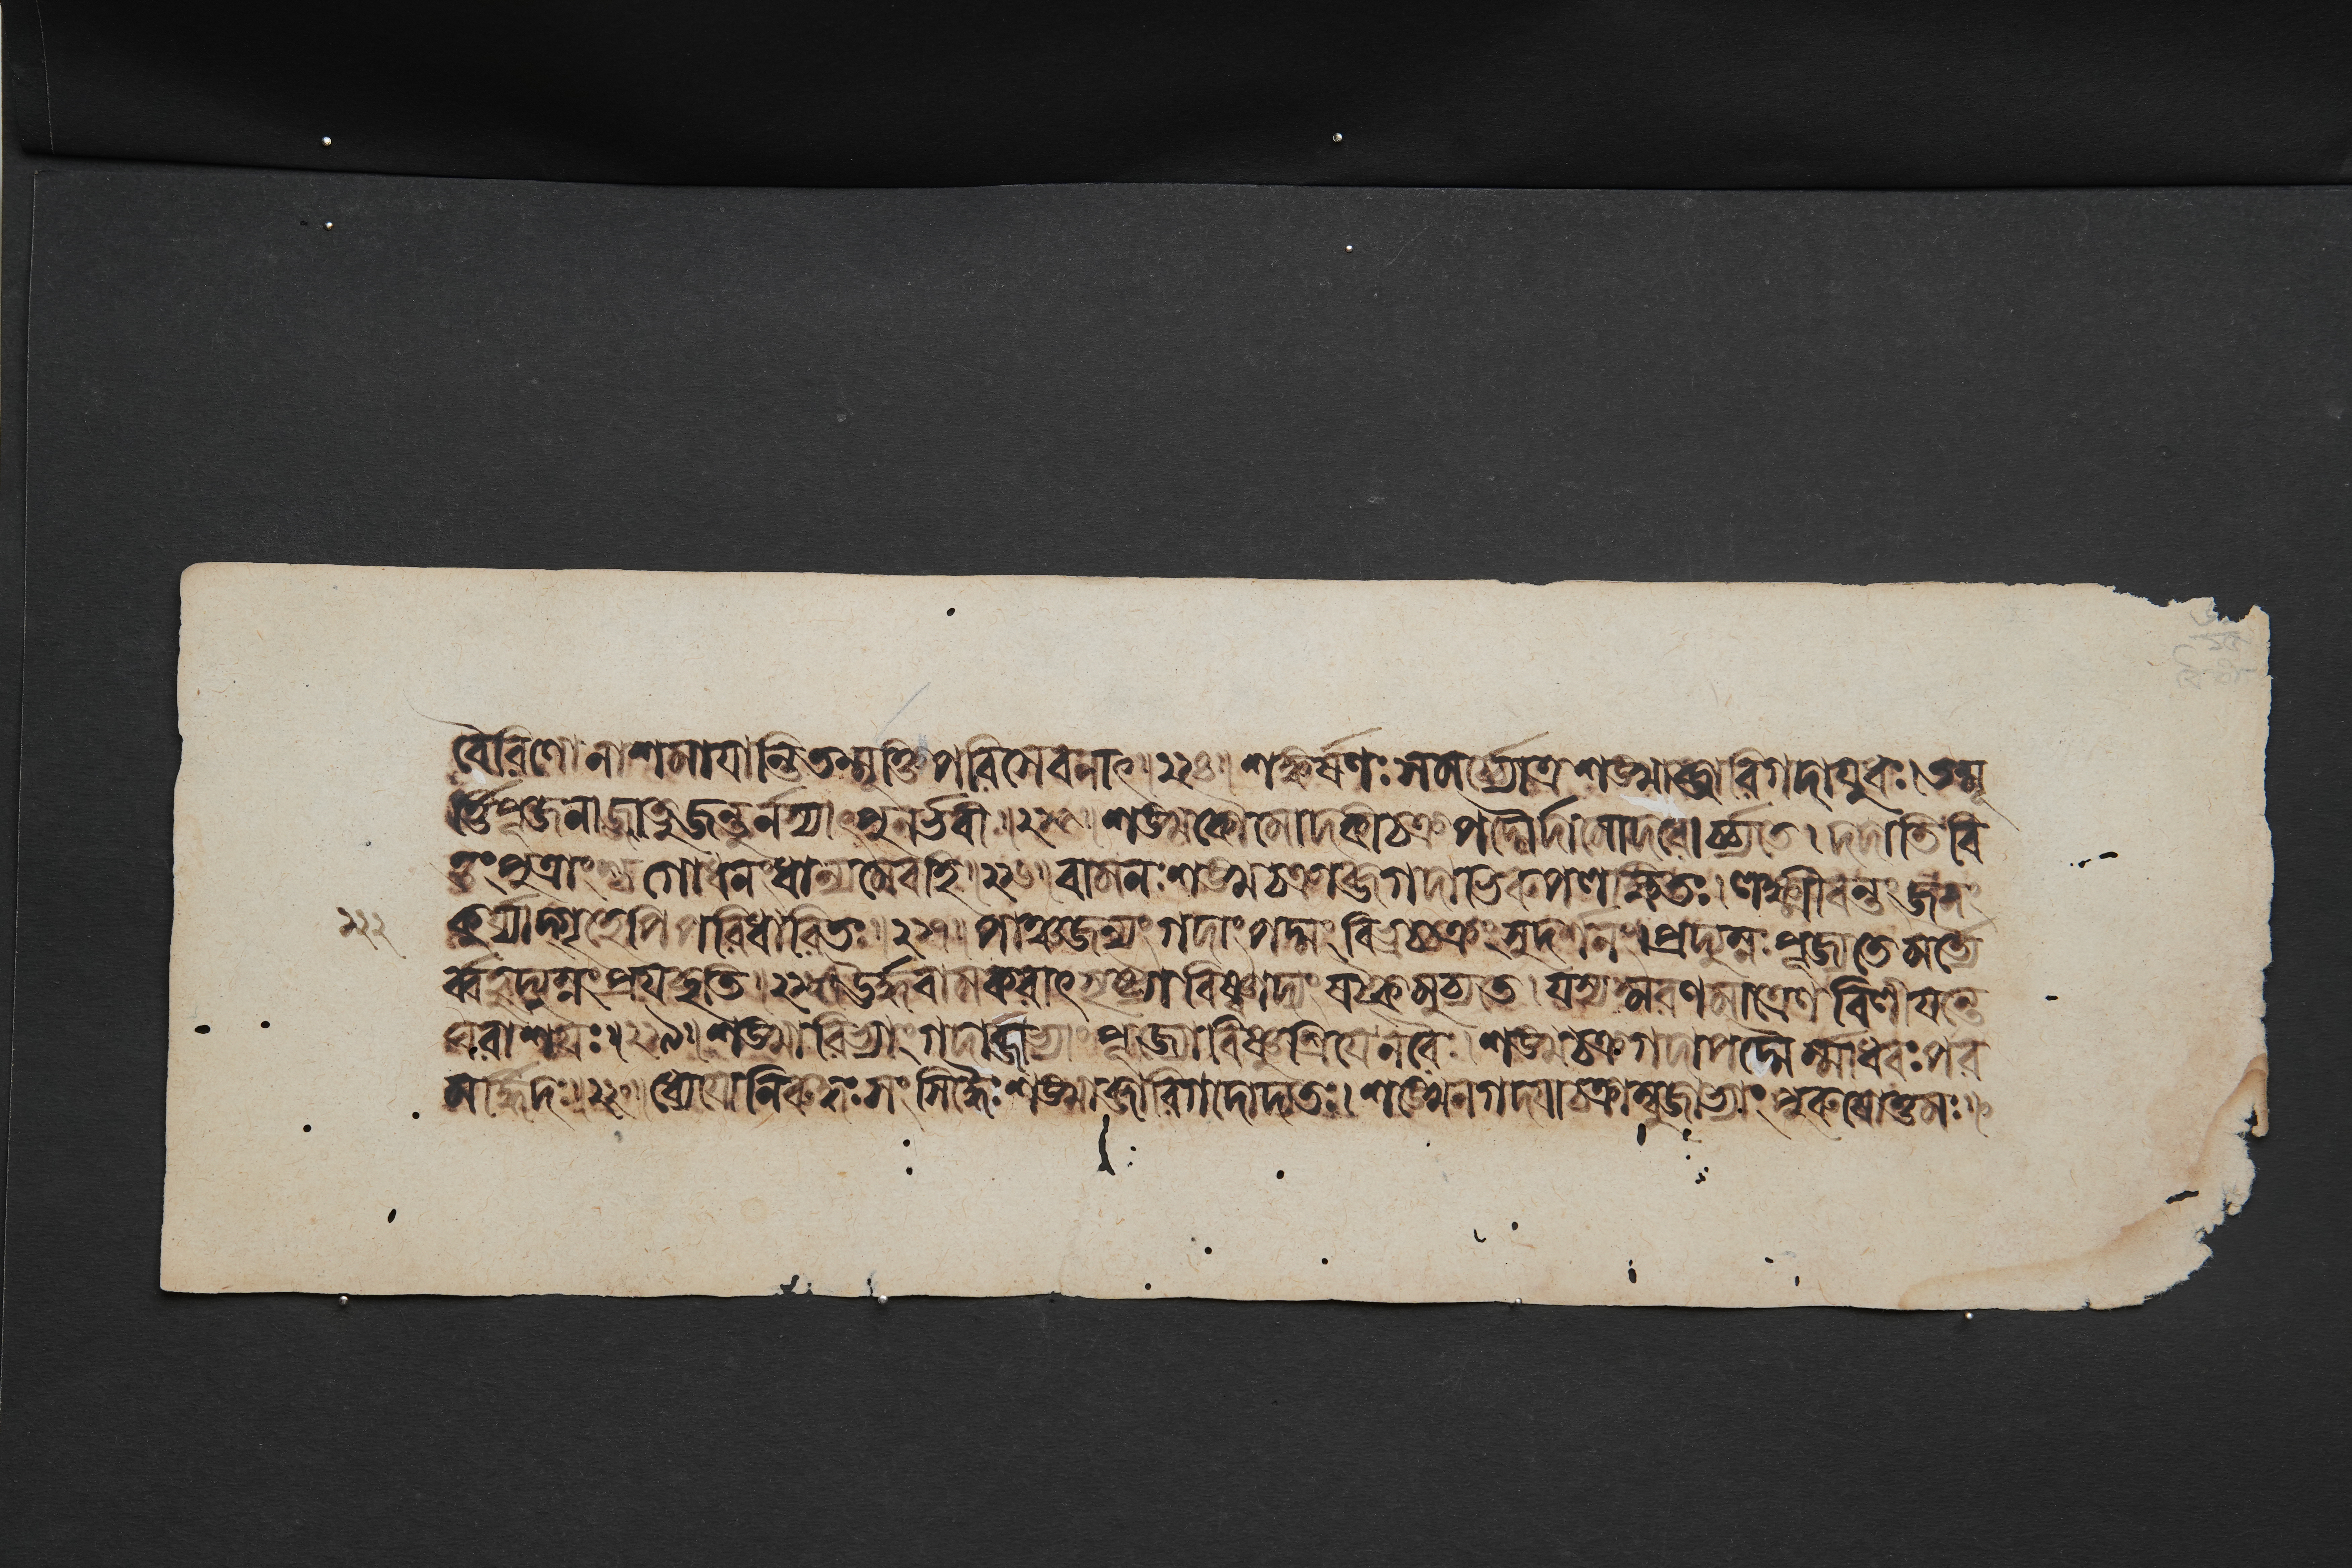 বৈরিণো নাশমাযান্তি তন্মূর্ত্তিপরিসেবনাৎ॥২২৪॥ শঙ্কর্ষণঃ সমর্চ্চ্যোত্র শঙ্খাব্জারিগদাযুধঃ। তন্মূ
র্ত্তিপূজনাজ্জাতু জন্তুর্নস্যাৎপুনর্ভবী॥২২৫॥ শঙ্খকৌমোদকীচক্রপদ্মৈর্দামোদরোর্চ্চ্যতে। দদাতি বি
ত্তং পুত্রাংশ্চ গোধনং ধান্যমেবহি॥২২৬॥ বামনঃ শঙ্খচক্রাব্জগদাভিরুপলক্ষিতঃ। লক্ষ্মীবন্তং জনং
২২২ কুর্য্যাদ্গৃহেপিপরিধারিতঃ॥২২৭॥ পাঞ্চজন্যং গদাং পদ্মং বিভ্রচ্চক্রং সুদর্শনং। প্রদ্যুম্নঃ পূজ্যতে মর্ত্যৈ
র্ব্বহুদ্যুম্নং প্রযচ্ছতি॥২২৮॥ ঊর্দ্ধবামকরাৎ সৃষ্ট্যা বিষ্ণ্বাদ্যং ষট্কমুচ্যতে। যস্য স্মরণমাত্রেণ বিলীযন্তে
ঘরাশযঃ॥২২৯॥ শঙ্খারিভ্যাং গদাব্জাভ্যাং পূজ্যো বিষ্ণুঃ শ্রিযেনরৈঃ। শঙ্খচক্রগদাপদ্মৈর্ম্মাধবঃ পর
মর্দ্ধিদঃ॥২৩০॥ ধ্যেযোনিরুদ্ধঃ সংসিদ্ধৈঃ শঙ্খাব্জারিগদোদ্যতঃ। শঙ্খেনগদযাচক্রাম্বুজাভ্যাং পুরুষোত্তমঃ॥